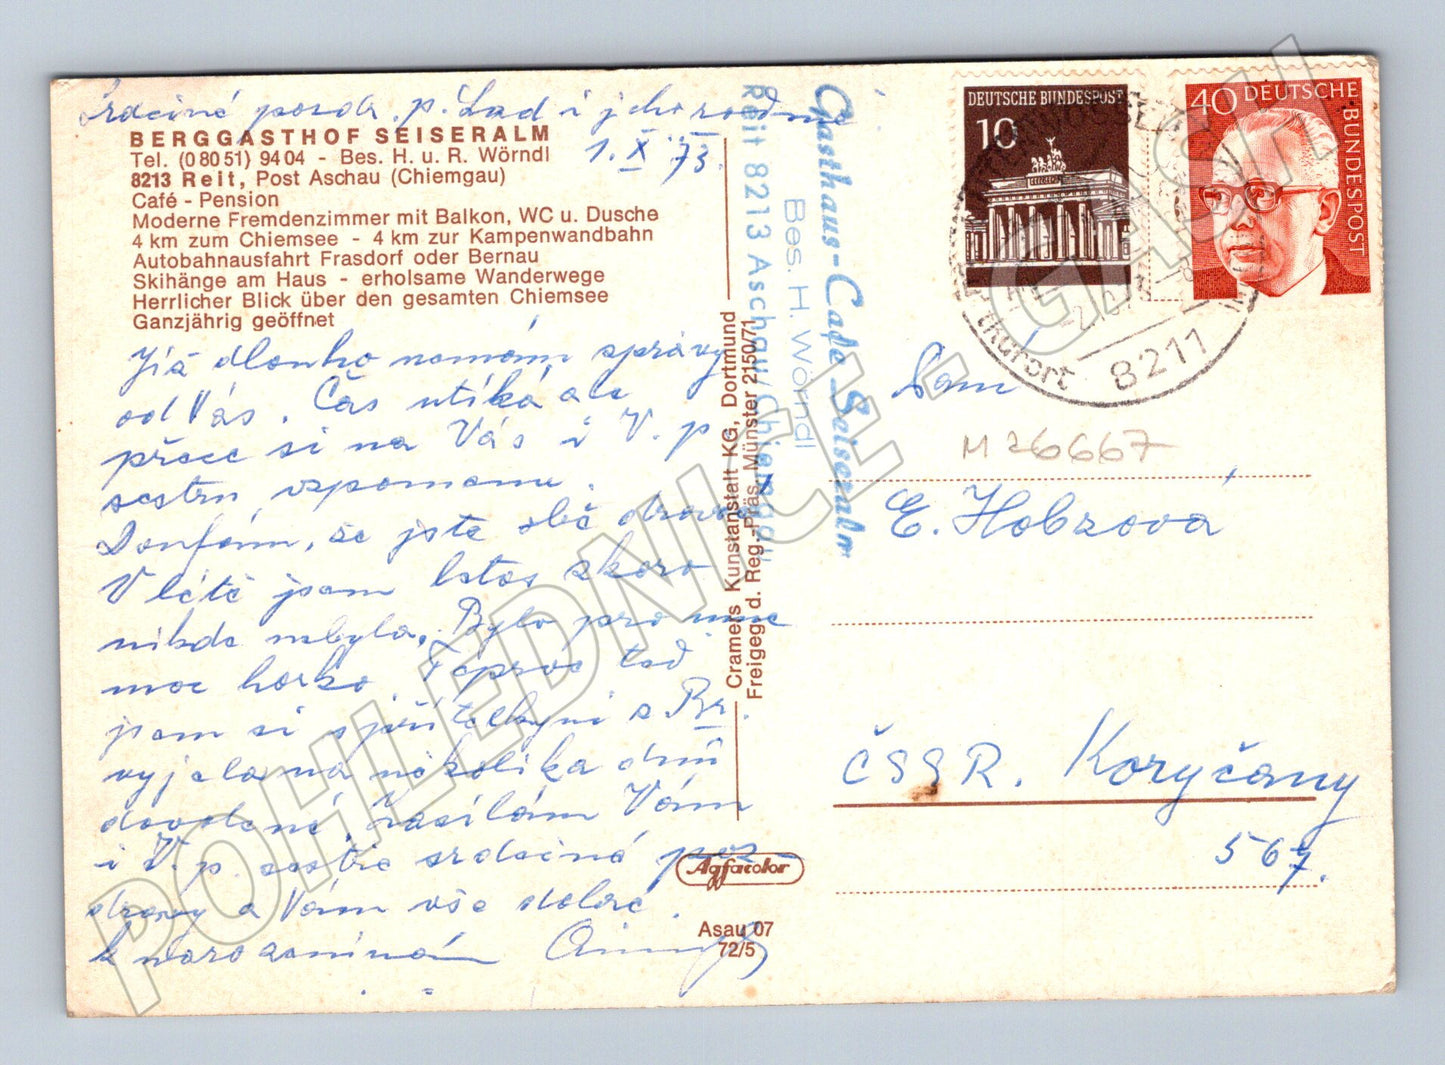 Srdečně pozdr. p. Lad i jeho rodině
1. X 73.
BERGGASTHOF SEISERALM
Tel. (0 80 51) 94 04 - Bes. H. u. R. Wörndl
8213 Reit, Post Aschau (Chiemgau)
Café - Pension
Moderne Fremdenzimmer mit Balkon, WC u. Dusche
4 km zum Chiemsee - 4 km zur Kampenwandbahn
Autobahnausfahrt Frasdorf oder Bernau
Skihänge am Haus - erholsame Wanderwege
Herrlicher Blick über den gesamten Chiemsee
Ganzjährig geöffnet
Již dlouho nemám zprávy
od Vás. Čas utíká ale
přece si na Vás i V. p.
sestru vzpomenu.
Doufám, že jste obě zdravé
V létě jsem letos skoro
nikde nebyla. Bylo pro mne
moc horko. Teprve teď
jsem si s přítelkyní z Br.
vyjela na několika dnů
dovolené, zasílám Vám
i V. p. sestře srdečné poz-
dravy a Vám vše dobré.
k narozeninám
Cramers Kunstanstalt KG, Dortmund
Freigeg. d. Reg.-Präs. Münster 2150/71
Agfacolor
Asau 07
72/5
Gasthaus-Café Seiseralm
Bes. H. Wörndl
Reit 8213 Aschau/Chiemgau
DEUTSCHE BUNDESPOST
10
40 DEUTSCHE
BUNDESPOST
8211
M26667
Paní
E. Hobzová
ČSSR. Koryčany
567.
POHLEDNICE - GASH